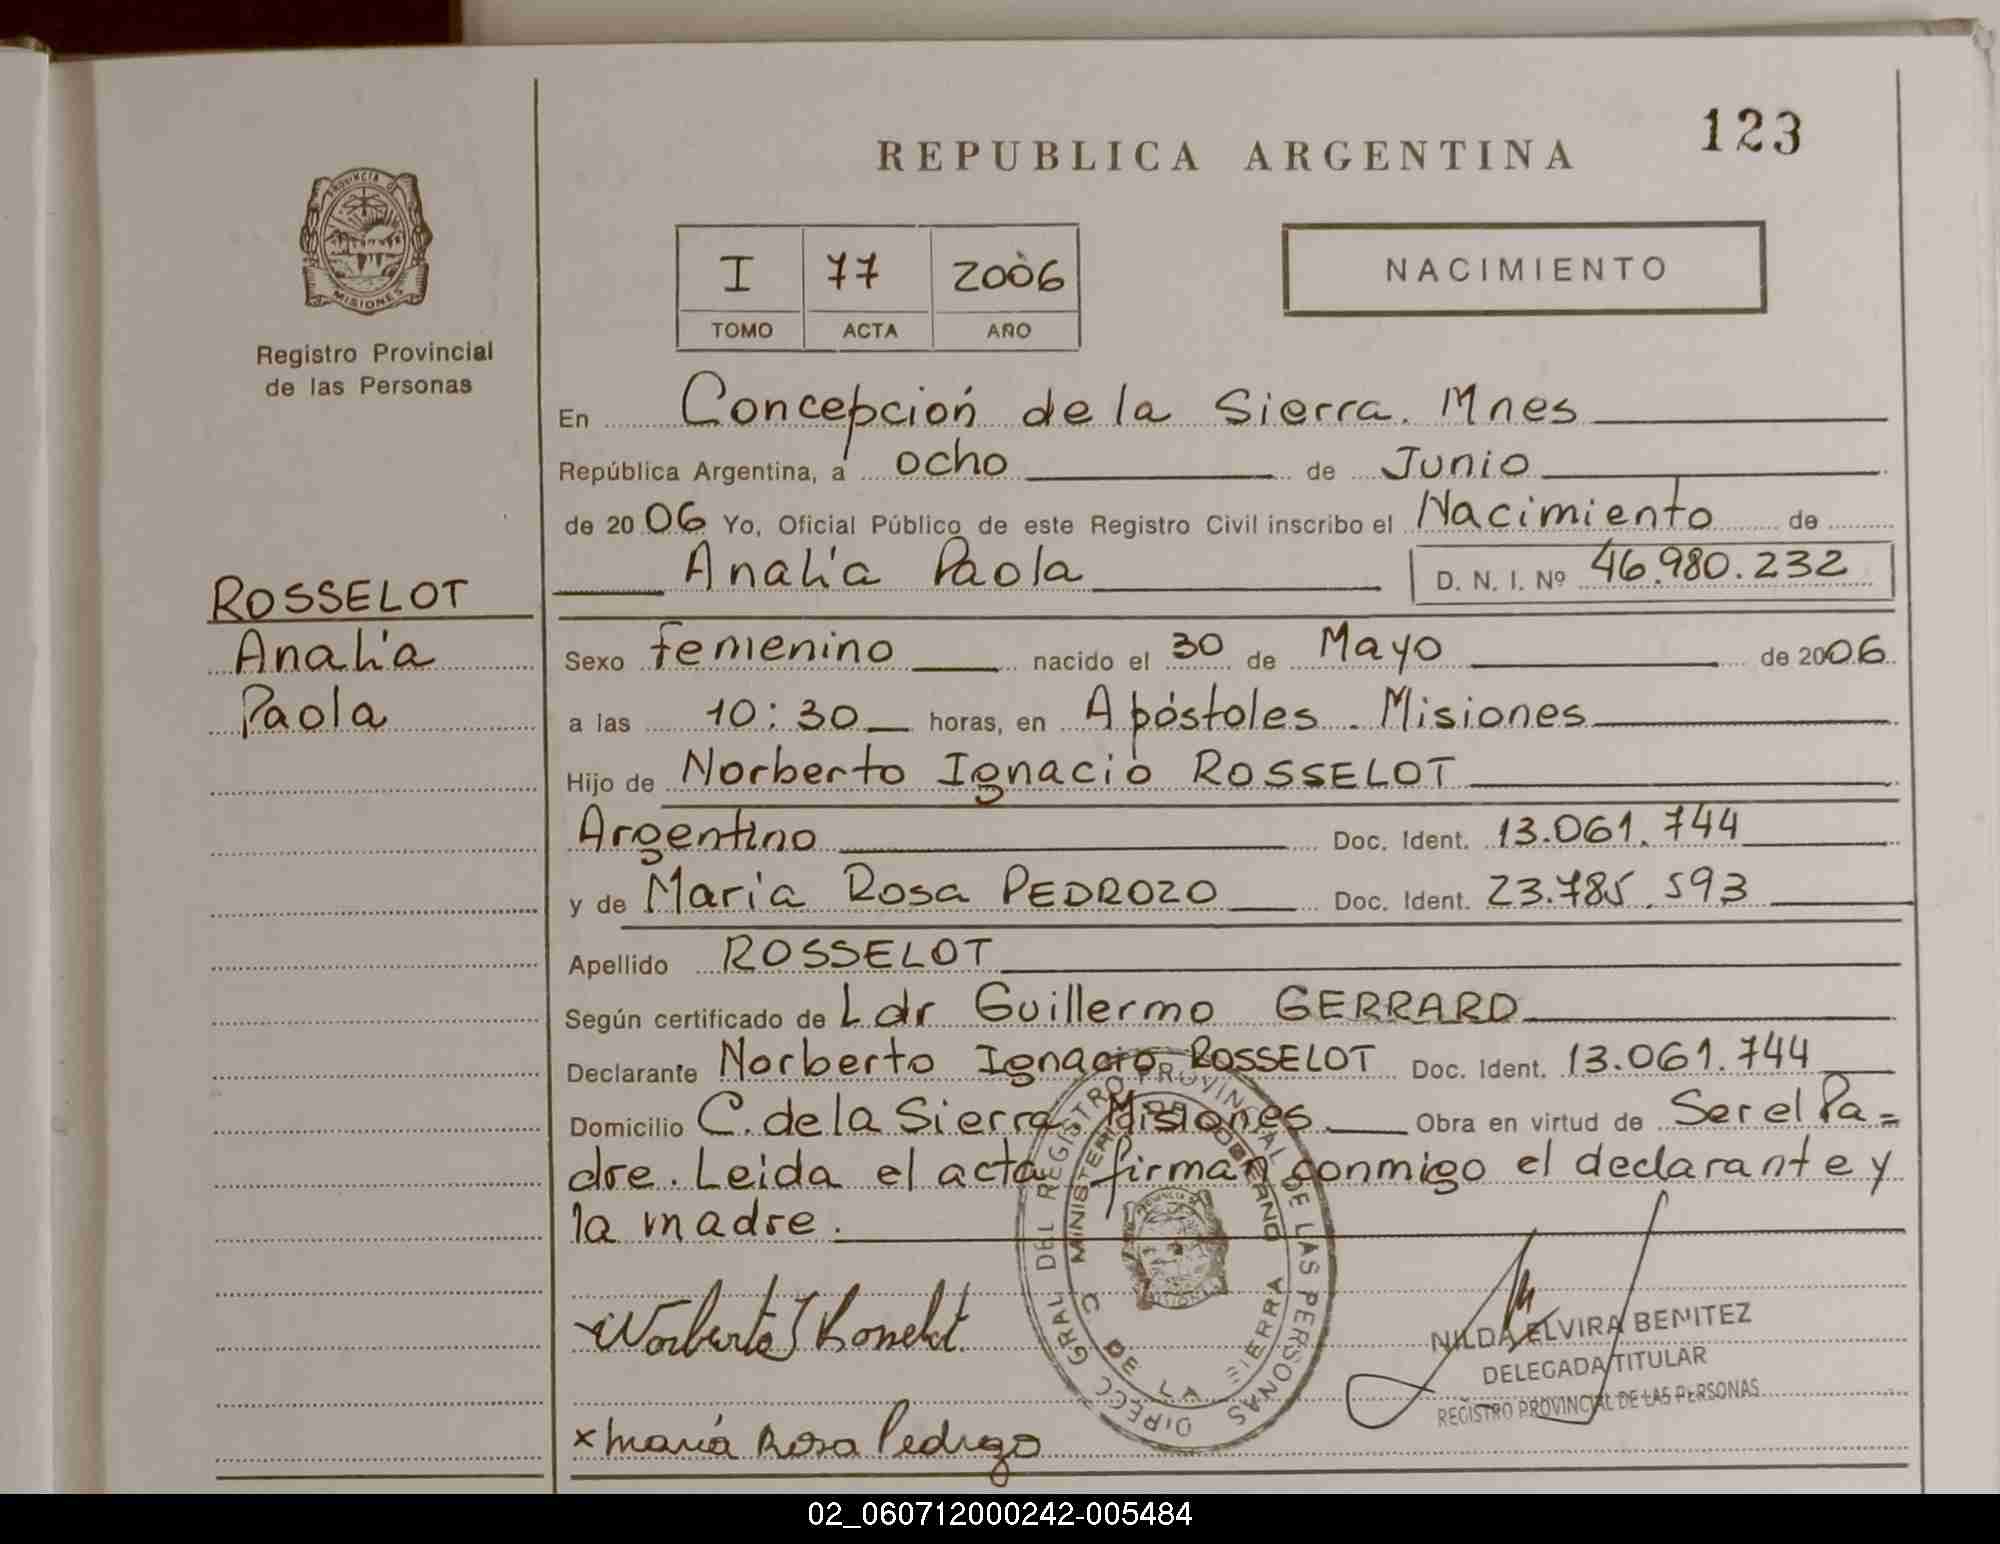 123
REPUBLICA ARGENTINA
PROVINCIA DE
MISIONES
Registro Provincial
de las Personas
I 77 2006
TOMO ACTA AÑO
NACIMIENTO
En Concepción de la Sierra. Mnes
República Argentina, a ocho de Junio
de 2006 Yo, Oficial Público de este Registro Civil inscribo el Nacimiento de
Analía Paola D. N. I. Nº 46.980.232
ROSSELOT
Analía
Paola
Sexo femenino nacido el 30 de Mayo de 2006
a las 10:30 horas, en Apóstoles. Misiones
Hijo de Norberto Ignacio ROSSELOT
Argentino Doc. Ident. 13.061.744
y de María Rosa PEDROZO Doc. Ident. 23.785.593
Apellido ROSSELOT
Según certificado de Ldr Guillermo GERRARD
Declarante Norberto Ignacio ROSSELOT Doc. Ident. 13.061.744
Domicilio C. de la Sierra, Misiones Obra en virtud de Ser el Pa=
dre. Leida el acta firman conmigo el declarante y
la madre.
DIRECC GRAL DEL REGISTRO PROVINCIAL DE LAS PERSONAS
MINISTERIO DE GOBIERNO
C DE LA SIERRA
Norberto I Rosselot
x María Rosa Pedrozo
NILDA ELVIRA BENITEZ
DELEGADA TITULAR
REGISTRO PROVINCIAL DE LAS PERSONAS
02_060712000242-005484